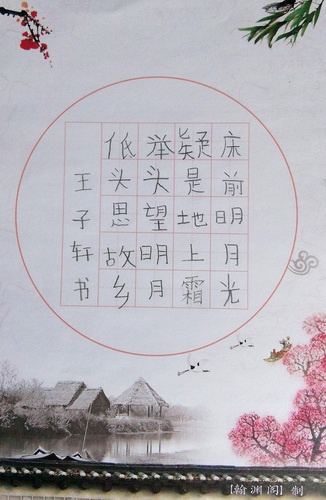 床前明月光
疑是地上霜
举头望明月
低头思故乡
王子轩书
【翰渊阁】制